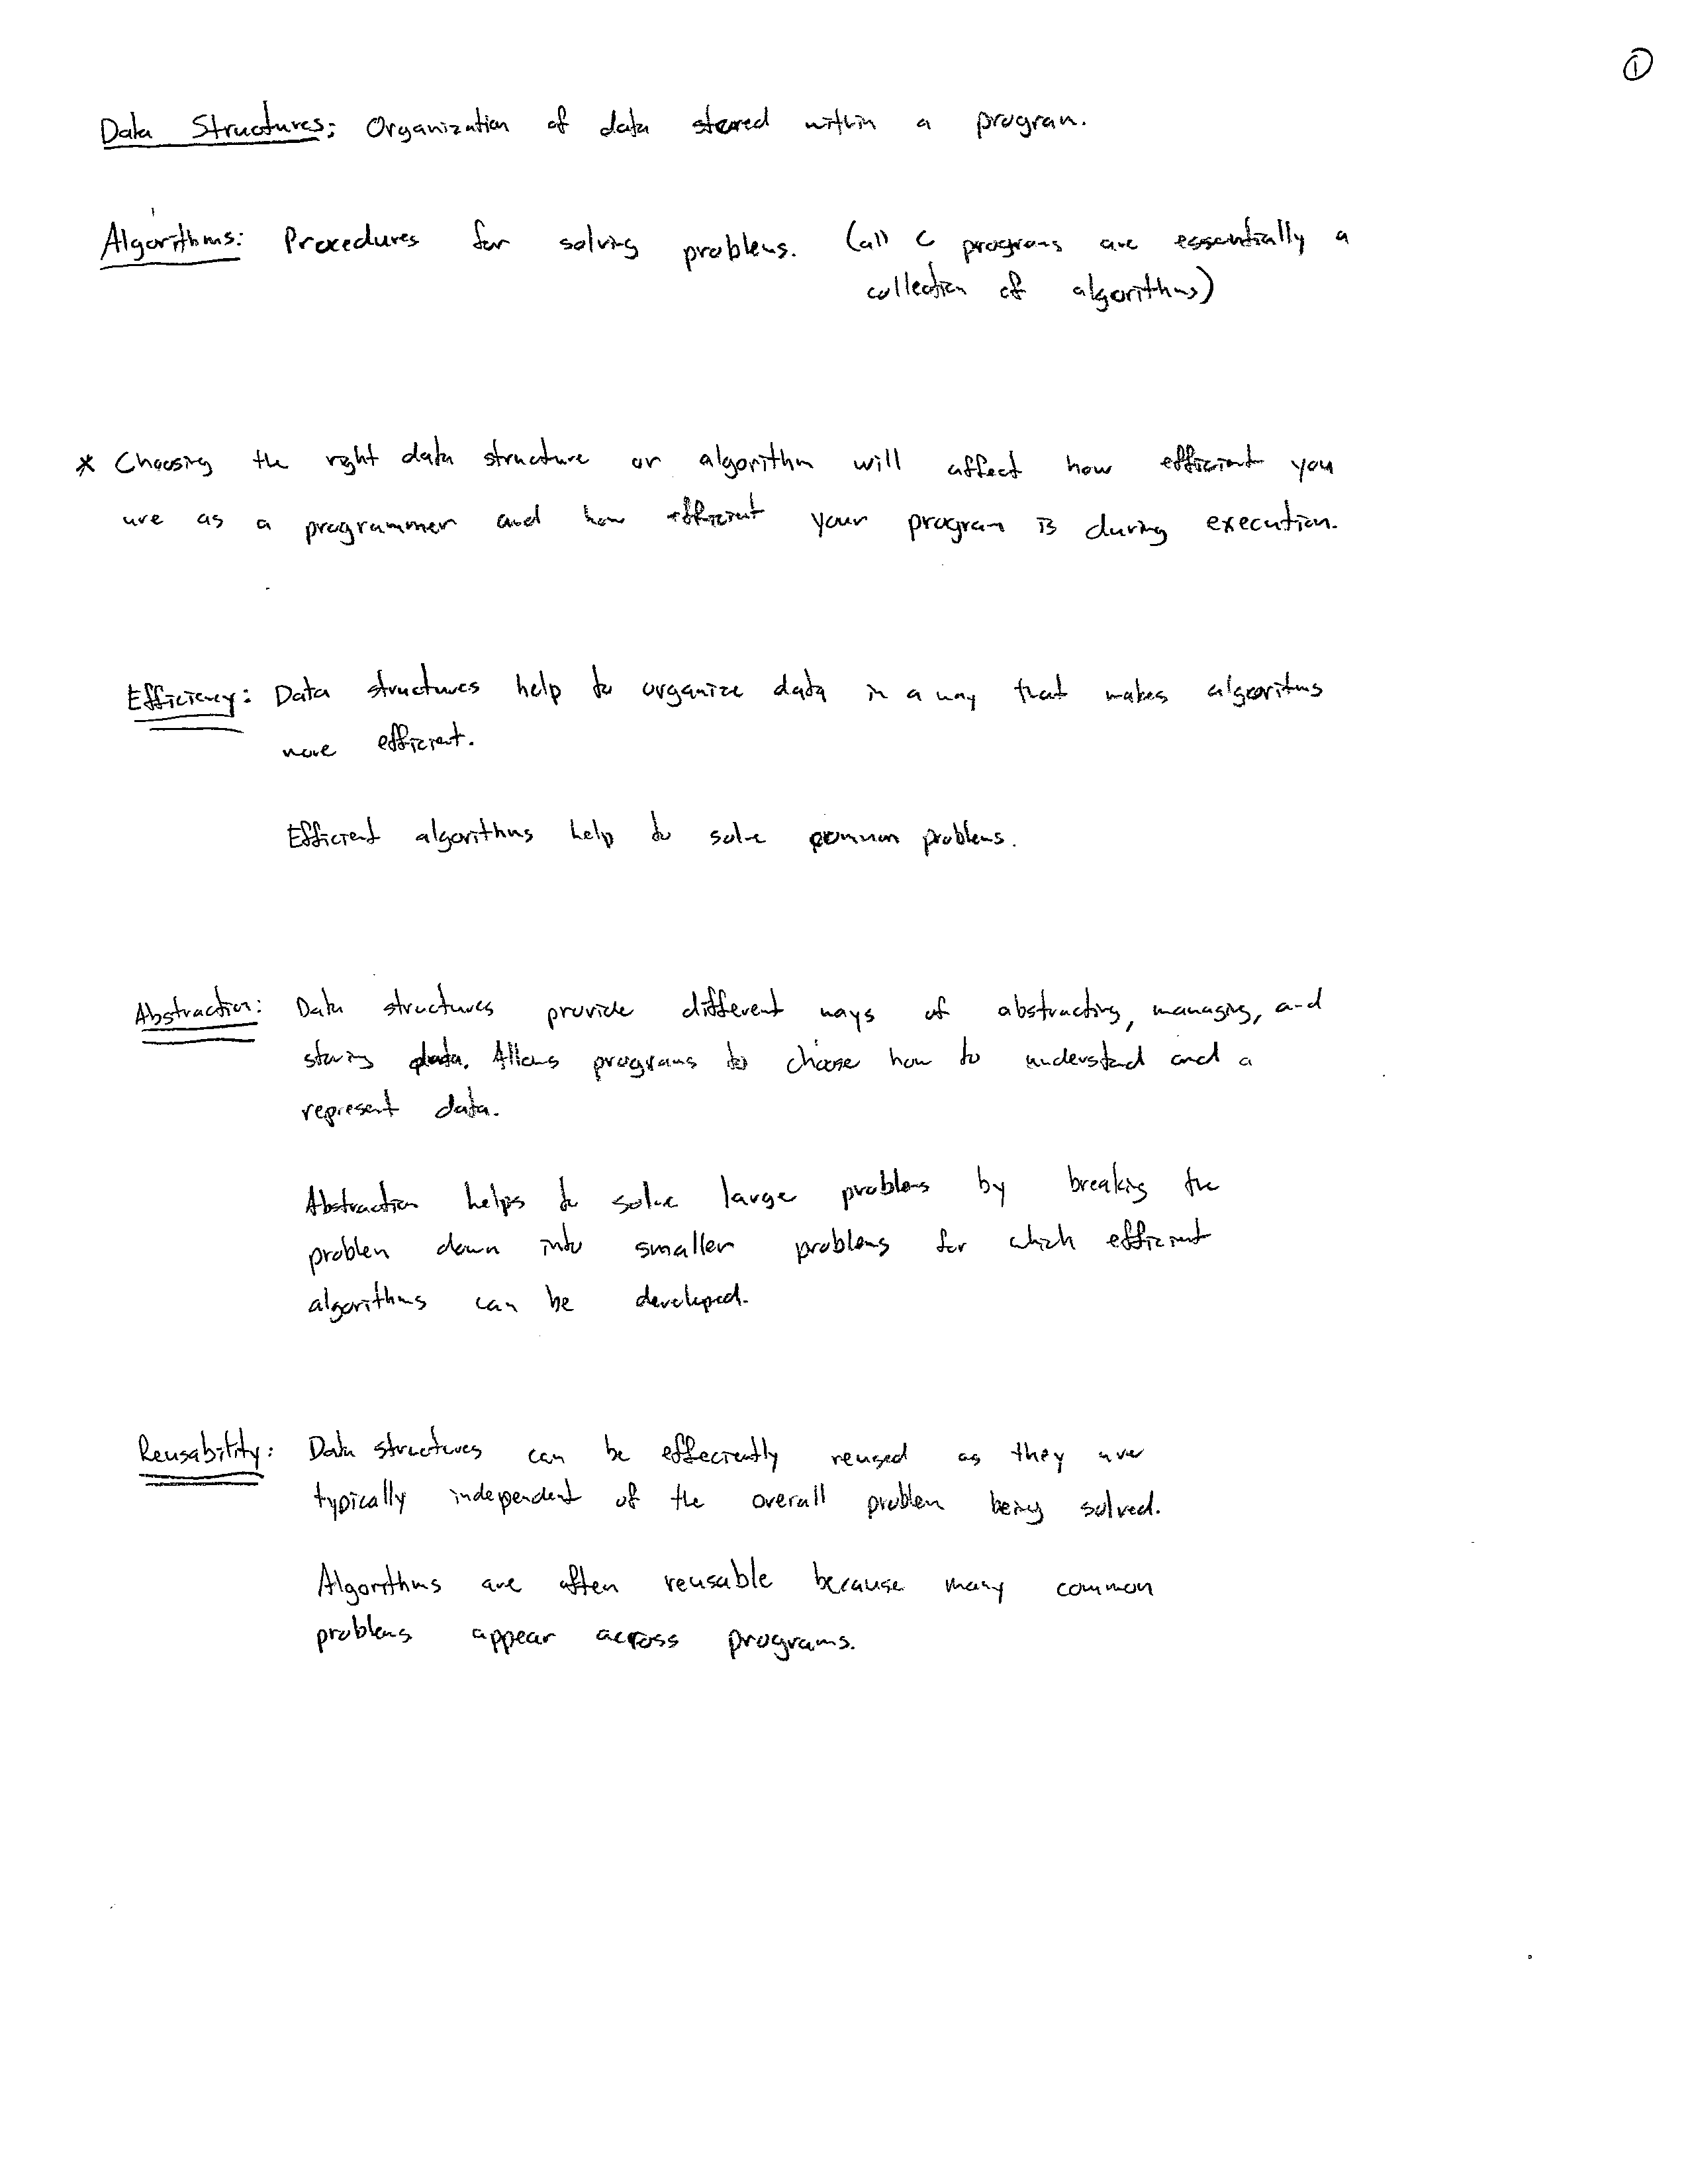 ①
Data Structures: Organization of data stored within a program.
Algorithms: Procedures for solving problems. (all C programs are essentially a
collection of algorithms)
* Choosing the right data structure or algorithm will affect how efficient you
are as a programmer and how efficient your program is during execution.
Efficiency: Data structures help to organize data in a way that makes algorithms
more efficient.
Efficient algorithms help to solve common problems.
Abstraction: Data structures provide different ways of abstracting, managing, and
storing data. Allows programs to choose how to understand and a
represent data.
Abstraction helps to solve large problems by breaking the
problem down into smaller problems for which efficient
algorithms can be developed.
Reusability: Data structures can be effeciently reused as they are
typically independent of the overall problem being solved.
Algorithms are often reusable because many common
problems appear across programs.